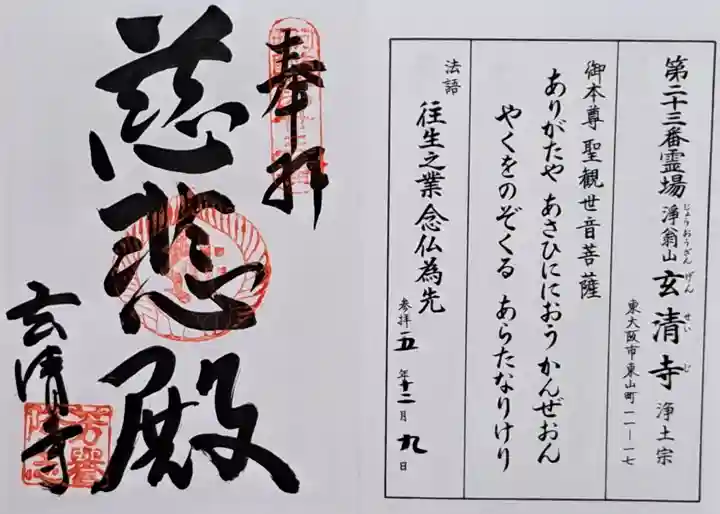 奉拝
慈悲殿
玄清寺
第二十三番霊場 浄翁山 玄清寺 浄土宗
じょうおうざん げんせいじ
東大阪市東山町一一−一七
御本尊 聖観世音菩薩
ありがたや あさひににおう かんぜおん
やくをのぞくる あらたなりけり
法語 往生之業 念仏為先
参拝 五年 十二月 九日